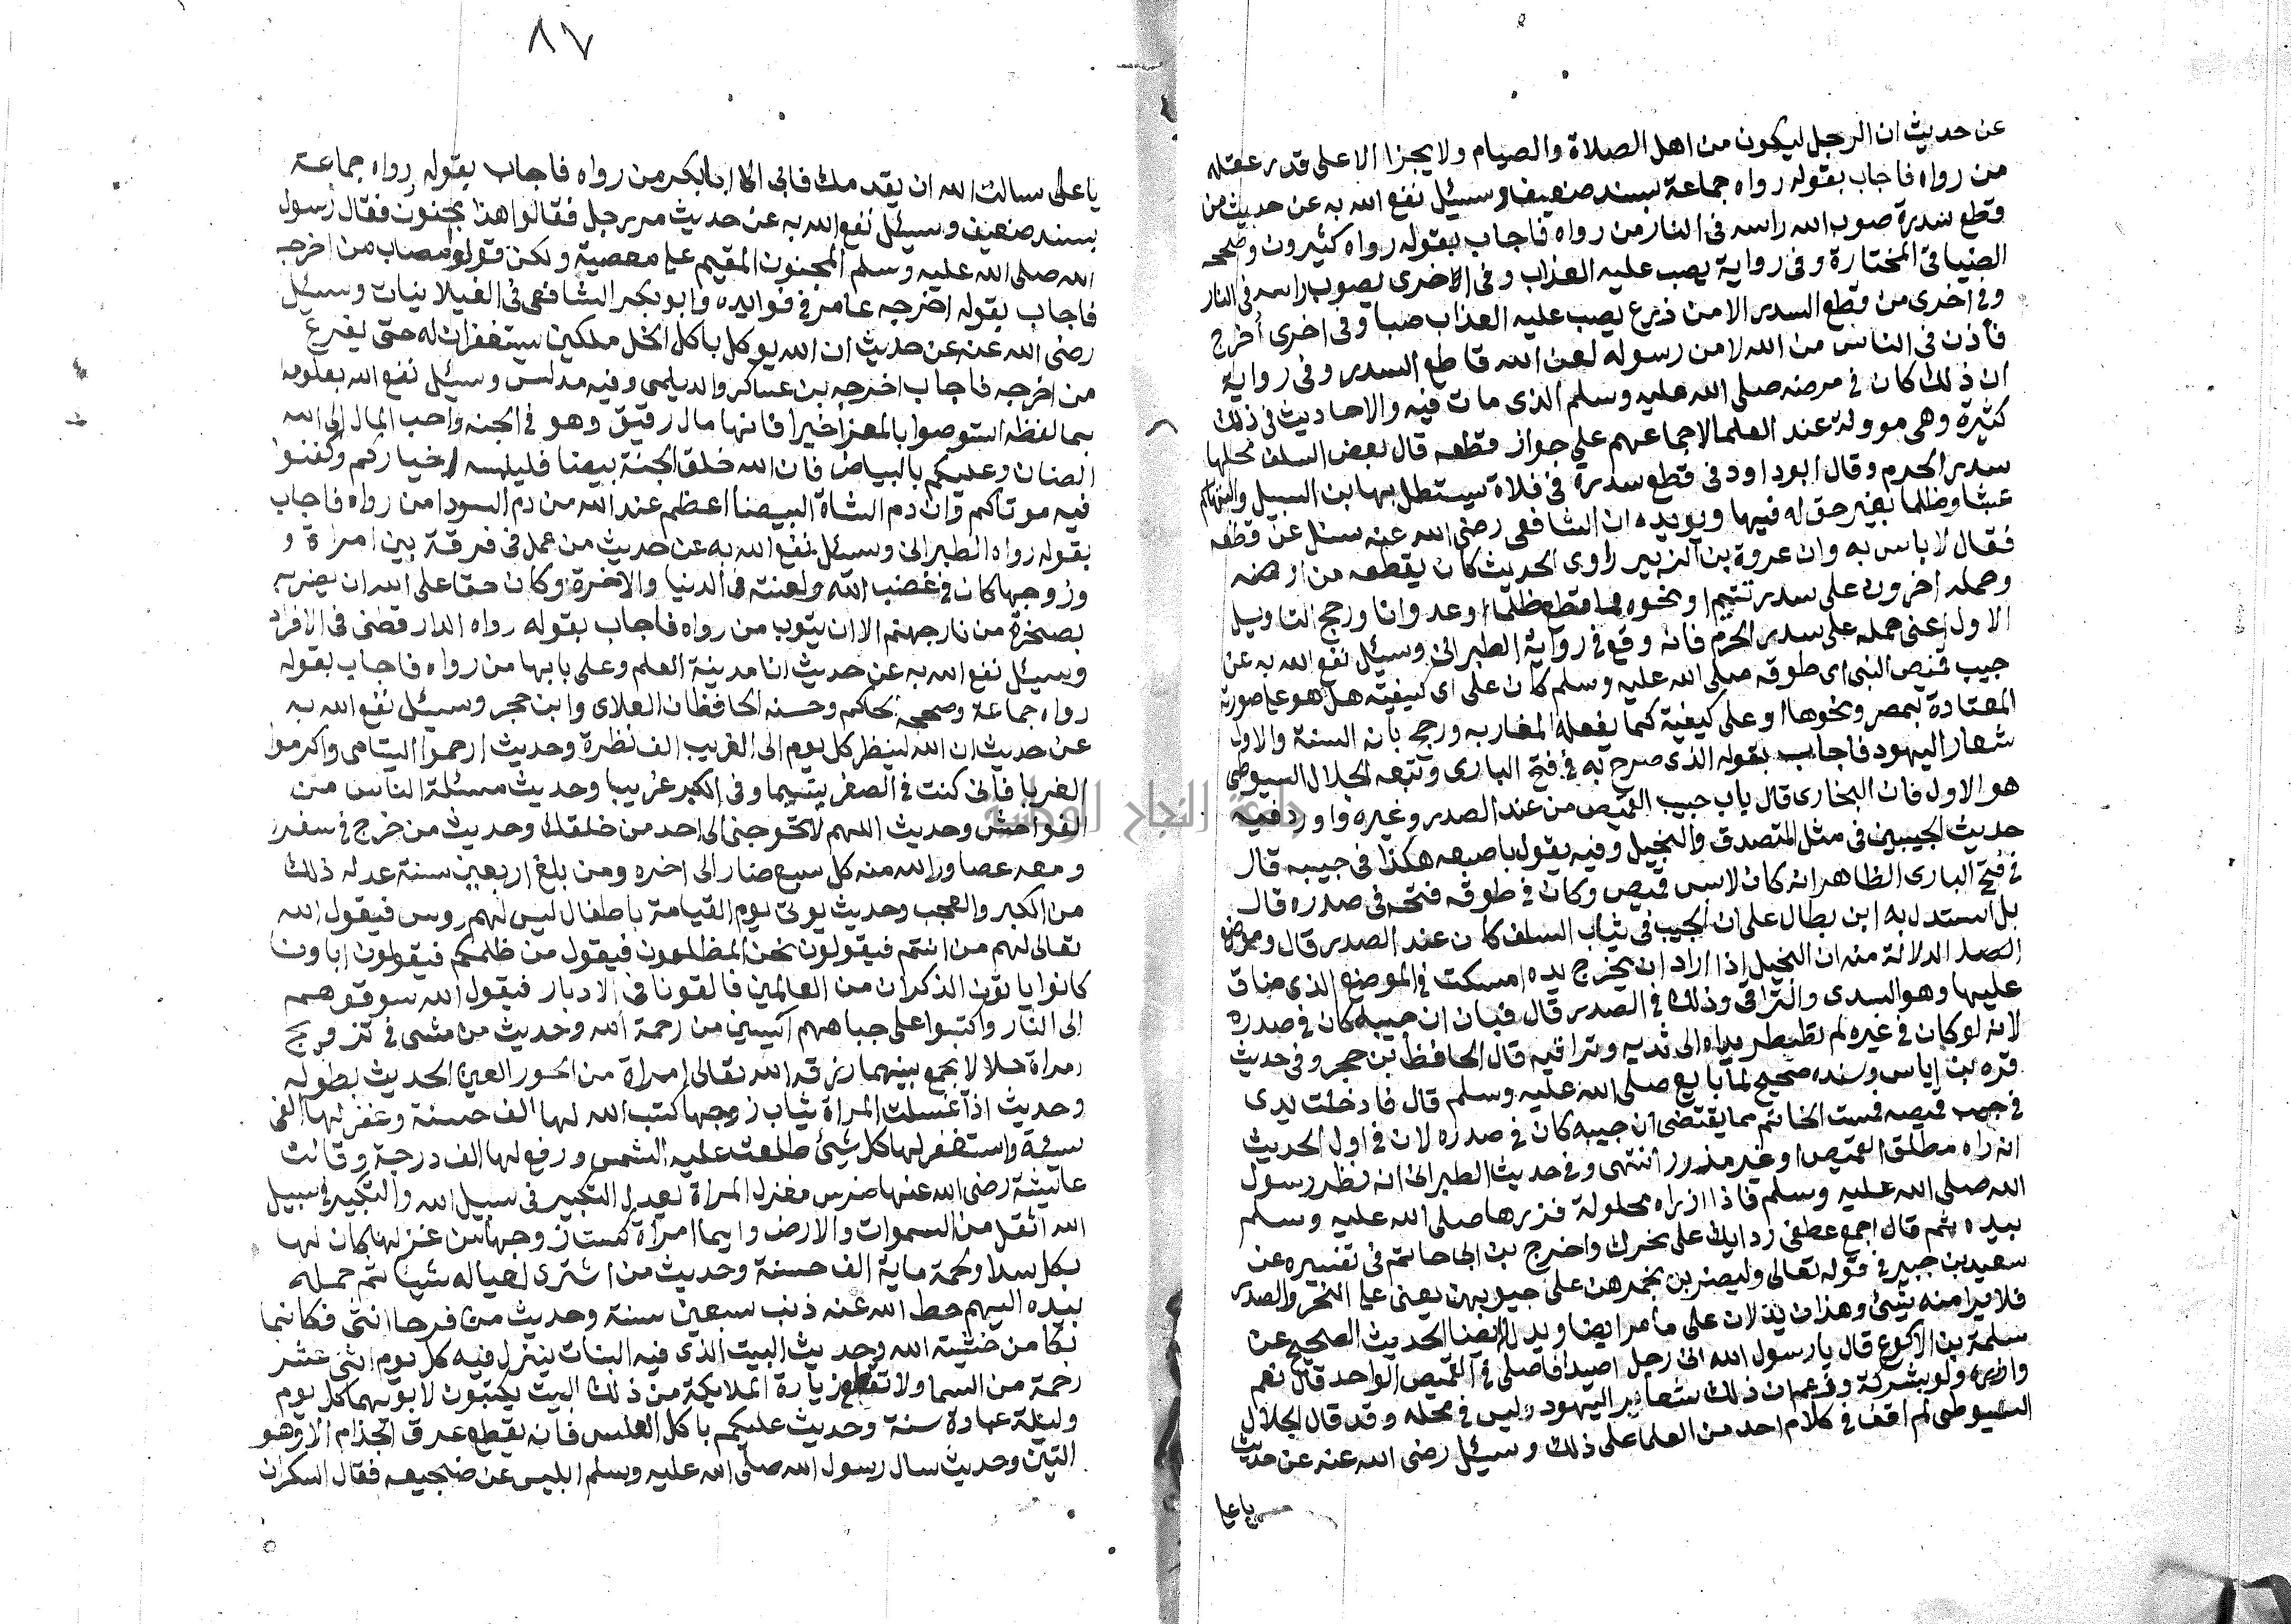 عن حديث ان الرجل ليكون من اهل الصلاة والصيام ولا يجزا الا على قدر عقله
من رواه فاجاب بقوله رواه جماعة بسند ضعيف وسيئل نفع الله به عن حديث من
قطع سدرة صوب الله راسه في النار من رواه فاجاب بقوله رواه كثيرون وصححه
الضيا في المختارة وفي رواية يصب عليه العذاب وفي الاخرى يصوب راسه في النار
وفي اخرى من قطع السدر الا من ذرع يصب عليه العذاب صبا وفي اخرى اخرج
فأذن في الناس من الله لا من رسوله لعن الله قاطع السدر وفي رواية
ان ذلك كان في مرضه صلى الله عليه وسلم الذى مات فيه والاحاديث في ذلك
كثيرة وهى موولة عند العلما لاجماعهم على جواز قطعه قال بعض السلف محلها
سدر الحرم وقال ابو داود في قطع سدرة في فلاة يستطل بها بن السبيل والبهائم
عبثا وظلما بغير حق له فيها ويويده ان الشافعى رضى الله عنه سئل عن قطعه
فقال لا باس به وان عروة بن الزبير راوى الحديث كان يقطعه من ارضه
وحمله اخرون على سدر تتيم او نحوه فمن قطع ظلما وعدوانا ورجح التاويل
الاول اعنى حمله على سدر الحرم فانه وقع في رواية الطبرانى وسيئل نفع الله به عن
جيب قميص النبى اى طوقه صلى الله عليه وسلم كان على اى كيفية هل هو على صورته
المعتادة بمصر ونحوها او على كيفية كما يفعله المغاربه ورجح بانه السنة والاول
شعار اليهود فاجاب بقوله الذى صرح به في فتح البارى وتبعه الجلال السيوطى
هو الاول فان البخارى قال باب جيب القميص من عند الصدر وغيره واورد فيه
حديث الجيبين في مثل المتصدق والبخيل وفيه يقول باصبعه هكذا في جيبه قال
في فتح البارى الظاهر انه كان لابس قميص وكان في طوقه فتحه في صدره قال
بل استدل به ابن بطال على ان الجيب في ثياب السلف كان عند الصدر قال وموضع
الدلالة منه ان البخيل اذا اراد ان يخرج يده امسكت في الموضع الذى ضاق
عليها وهو الثدى والتراقى وذلك في الصدر قال فبان ان جيبه كان في صدره
لانه لو كان في غيره لم تضطر يداه الى ثديه وتراقيه قال الحافظ بن حجر وفي حديث
قره بن اياس وسنده صحيح لما بايع صلى الله عليه وسلم قال فادخلت يدى
في جيب قميصه فمست الخاتم مما يقتضى ان جيبه كان في صدره لان في اول الحديث
انه راه مطلق القميص او غير مزرر انتهى وفي حديث الطبرانى انه نظر رسول
الله صلى الله عليه وسلم فاذا ازراره محلولة فزرها صلى الله عليه وسلم
بيده ثم قال اجمع عطفى ردايك على نحرك واخرج بن ابى حاتم في تفسيره عن
سعيد بن جبير في قوله تعالى وليضربن بخمرهن على جيوبهن يعنى على النحر والصدر
فلا يرا منه شيئ وهذان يدلان على ما مر ايضا ويدل ايضا الحديث الصحيح عن
سلمة بن الاكوع قال يا رسول الله انى رجل اصيد افاصلى في القميص الواحد قال نعم
وازره ولو بشوكة وزعم ان ذلك شعار اليهود ليس في محله وقد قال الجلال
السيوطى لم اقف في كلام احد من العلما على ذلك وسيئل رضى الله عنه عن حديث
يا على
٨٧
يا على سالت الله ان يقدمك فابى الا ابا بكر من رواه فاجاب بقوله رواه جماعة
بسند ضعيف وسيئل نفع الله به عن حديث مر رجل فقالوا هذا مجنون فقال رسول
الله صلى الله عليه وسلم المجنون المقيم على معصية ولكن قولوا مصاب من اخرجه
فاجاب بقوله اخرجه عامر في فوايده وابو بكر الشافعى في الغيلانيات وسيئل
رضى الله عنه عن حديث ان الله يوكل باكل الخل ملكين يستغفران له حتى يفرغ
من اخرجه فاجاب اخرجه بن عساكر والديلمى وفيه مدلس وسيئل نفع الله بعلومه
بما لفظه استوصوا بالمعز خيرا فانها مال رقيق وهو في الجنه واحب المال الى الله
الضان وعليكم بالبياض فان الله خلق الجنة بيضا فليلبسه خياركم وكفنوا
فيه موتاكم وان دم الشاة البيضا اعظم عند الله من دم السودا من رواه فاجاب
بقوله رواه الطبرانى وسيئل نفع الله به عن حديث من عمل في فرقة بين امراة و
وزوجها كان في غضب الله ولعنته في الدنيا والاخرة وكان حقا على الله ان يضربه
بصخرة من نار جهنم الا ان يتوب من رواه فاجاب بقوله رواه الدارقطنى في الافراد
وسيئل نفع الله به عن حديث انا مدينة العلم وعلى بابها من رواه فاجاب بقوله
رواه جماعة وصححه الحاكم وحسنه الحافظان العلاى وابن حجر وسيئل نفع الله به
عن حديث ان الله لينظر كل يوم الى الغريب الف نظرة وحديث ارحموا اليتامى واكرموا
الغربا فانى كنت في الصغر يتيما وفي الكبر غريبا وحديث مسئلة الناس من
الفواحش وحديث اللهم لا تحوجنى الى احد من خلقك وحديث من خرج في سفر
ومعه عصا ورا الله منه كل سبع ضار الى اخره ومن بلغ اربعين سنة عدله ذلك
من الكبر والعجب وحديث يوتى يوم القيامة باطفال ليس لهم روس فيقول الله
تعالى لهم من انتم فيقولون نحن المظلومون فيقول من ظلمكم فيقولون اباونا
كانوا ياتون الذكران من العالمين فالقونا في الادبار فيقول الله سوقوهم
الى النار واكتبوا على جباههم ايسين من رحمة الله وحديث من مشى في تزويج
امراة حلالا يجمع بينهما رزقه الله تعالى امراة من الحور العين الحديث بطوله
وحديث اذا غسلت المراة ثياب زوجها كتب الله لها الف حسنة وغفر لها الفى
سيئة واستغفر لها كل شيئ طلعت عليه الشمس ورفع لها الف درجة وقالت
عايشة رضى الله عنها ضرس مغزل المراة يعدل التكبير في سبيل الله والتكبير في سبيل
الله اثقل من السموات والارض وايما امراة كست زوجها من غزلها كان لها
بكل سدا ولحمة ماية الف حسنة وحديث من اشترى لعياله شيئا ثم حمله
بيده اليهم حط الله عنه ذنب سبعين سنة وحديث من فرح انثى فكانما
بكا من خشية الله وحديث البيت الذى فيه البنات ينزل فيه كل يوم اثنى عشر
رحمة من السما ولا تقطع زيارة الملايكة من ذلك البيت يكتبون لابويهما كل يوم
وليلة عبادة سنة وحديث عليكم باكل العلس فانه يقطع عرق الجذام الا وهو
التين وحديث سال رسول الله صلى الله عليه وسلم ابليس عن ضجيعه فقال السكران
جامعة النجاح الوطنية